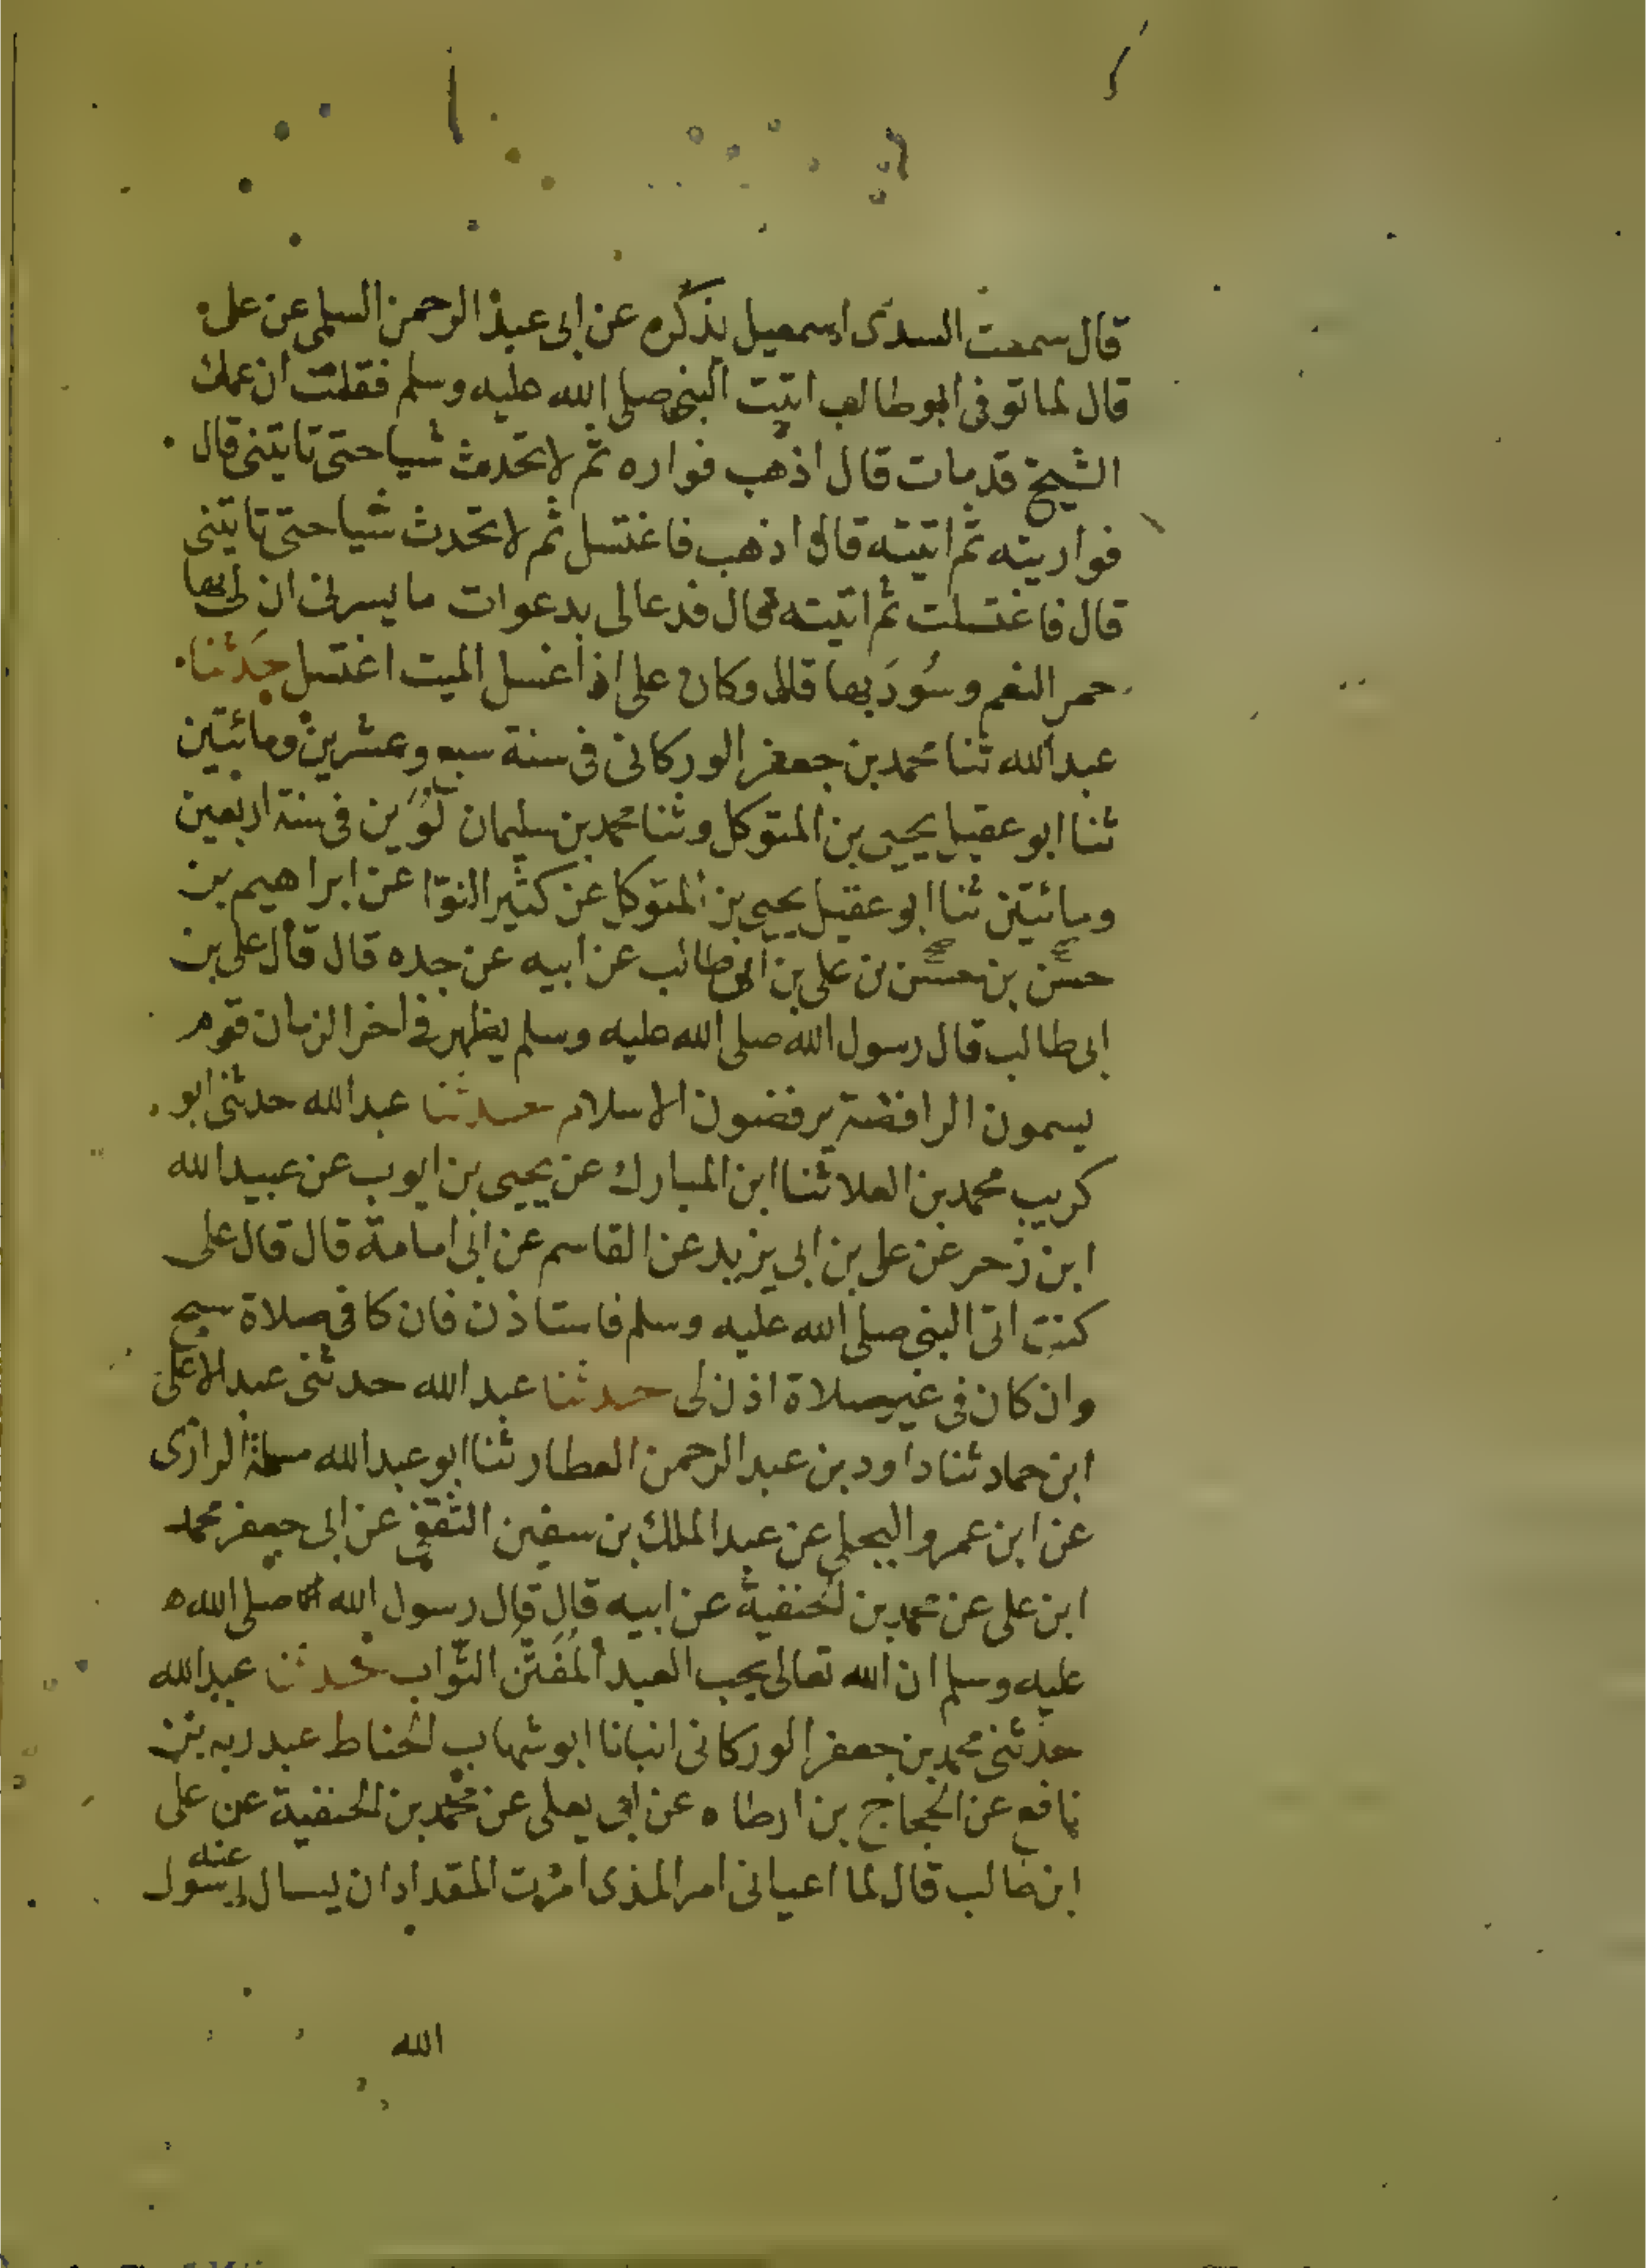 قال سمعت السدى اسمعيل يذكره عن ابى عبد الرحمن السلمى عن على
قال لما توفى ابو طالب اتيت النبى صلى الله عليه وسلم فقلت ان عمك
الشيخ قد مات قال اذهب فواره ثم لا تحدث شيا حتى تاتينى قال
فواريته ثم اتيته قال اذهب فاغتسل ثم لا تحدث شيا حتى تاتينى
قال فاغتسلت ثم اتيته قال فدعا لى بدعوات ما يسرنى ان لى بها
حمر النعم وسُودَها قال وكان على اذا غسل الميت اغتسل حدثنا
عبد الله ثنا محمد بن جعفر الوركانى فى سنة سبع وعشرين ومائتين
ثنا ابو عقيل يحيى بن المتوكل وثنا محمد بن سليمان لوين فى سنة اربعين
ومائتين ثنا ابو عقيل يحيى بن المتوكل عن كثير النوّا عن ابراهيم بن
حسن بن حسن بن على بن ابى طالب عن ابيه عن جده قال قال على بن
ابى طالب قال رسول الله صلى الله عليه وسلم يظهر فى اخر الزمان قوم
يسمون الرافضة يرفضون الاسلام حدثنا عبد الله حدثنى ابو
كريب محمد بن العلا ثنا ابن المبارك عن يحيى بن ايوب عن عبيد الله
ابن زحر عن على بن ابى يزيد عن القاسم عن ابى امامة قال قال على
كنت اتى النبى صلى الله عليه وسلم فاستاذن فان كا فى صلاة سبح
وان كان فى غير صلاة اذن لى حدثنا عبد الله حدثنى عبد الاعلى
ابن حماد ثنا داود بن عبد الرحمن العطار ثنا ابو عبد الله مسلمة الرازى
عن ابن عمرو البجلى عن عبد الملك بن سفين الثقفى عن ابى جعفر محمد
ابن على عن محمد بن الحنفية عن ابيه قال قال رسول الله صلى الله
عليه وسلم ان الله تعالى يحب العبد المُفَتَّن التّواب حدثنا عبد الله
حدثنى محمد بن جعفر الوركانى انبانا ابو شهاب الحناط عبد ربه بن
نافع عن الحجاج بن ارطاه عن ابى يعلى عن محمد بن الحنفية عن على
ابن طالب قال لما اعيانى امر المذى امرت المقداد ان يسال عنه رسول
الله